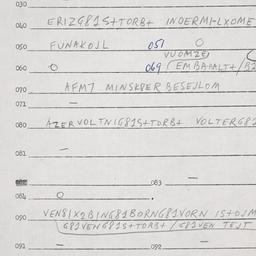 030
040 ERIZG81S+TORB+ INDERMI-LXOME
050 FUNAKOJL 051 O
VUOMZEJ
060 O 069 (EMBAHALT+/
070 AFM7 MINSKPER BESEJLOM
071 —
080 AZERVOLTNIG81S+TORB+ VOLTERG82
081 —
083 —
084 O
090 VEN81X2BING81BORNG81VORN IS+OJM
G81VENG81S+TORB+/G81VEN TEJT
091 — 092 —